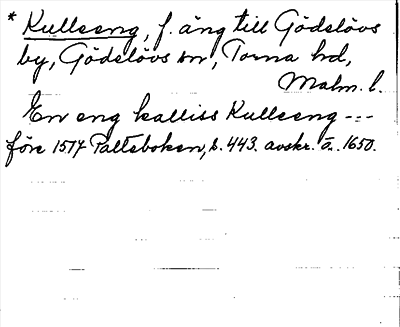 * Kulleeng, f. äng till Gödelövs
by, Gödelövs sn, Torna hd,
Malm. l.
En eng kalliss Kulleeng ---
före 1517 Palteboken, s. 443. avskr. o. 1650.